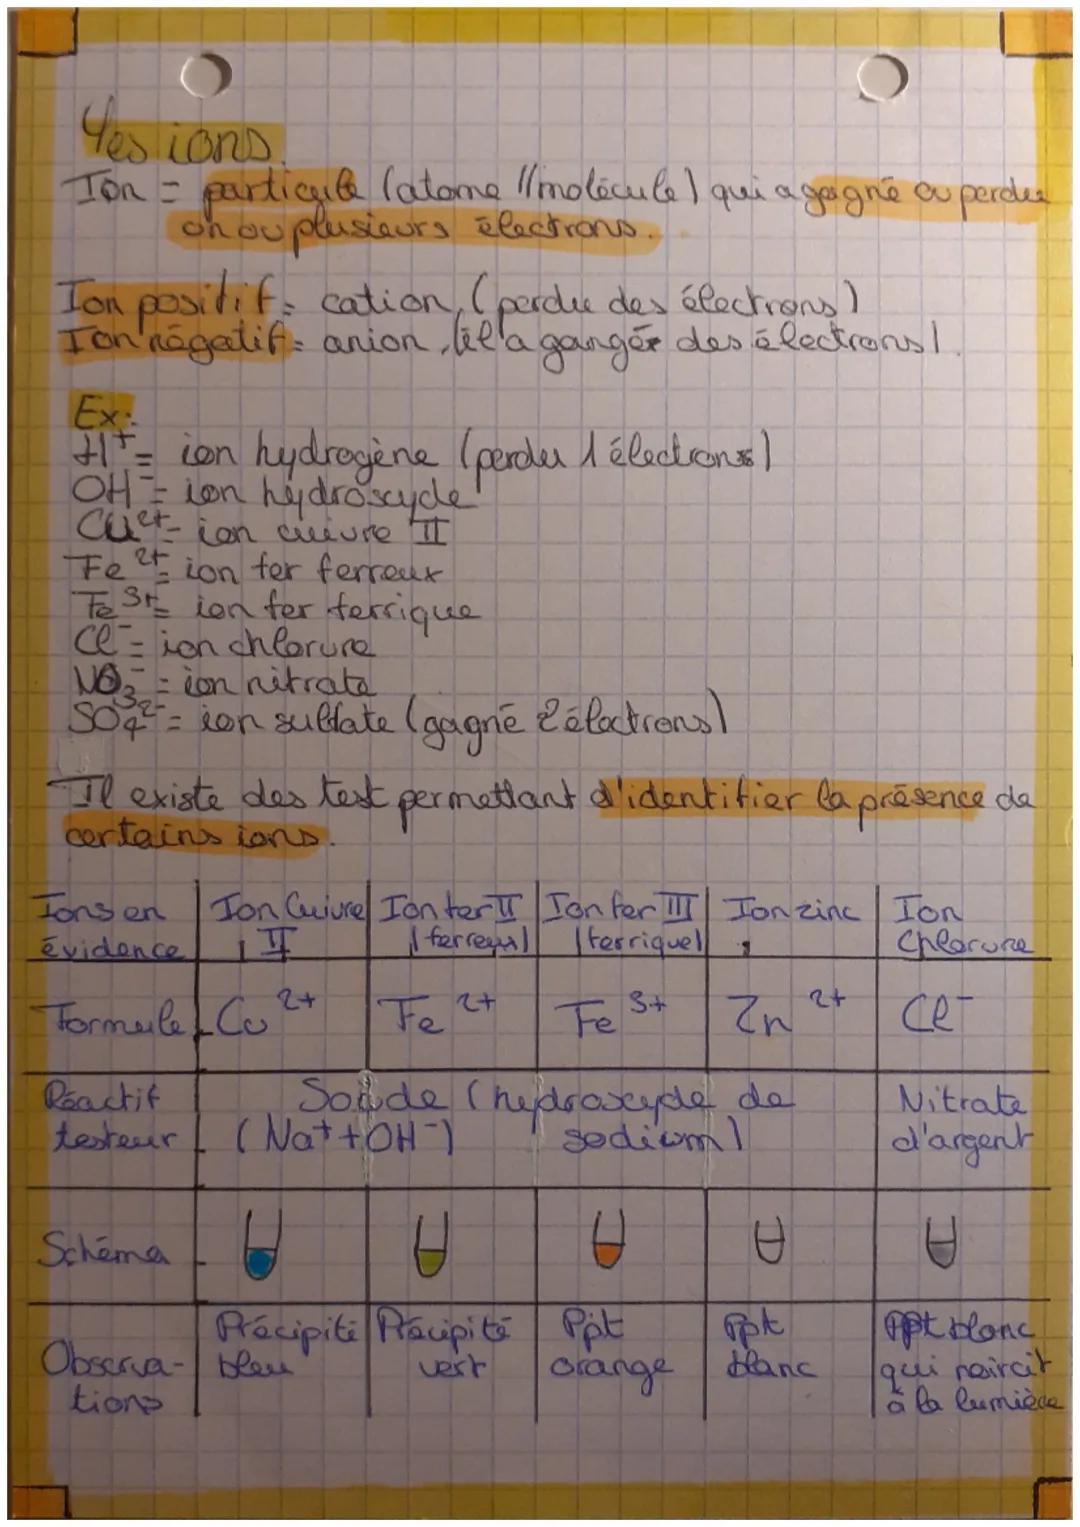 Les ions.
Ion = particule (atome // molécule) qui a gagné ou perdu
un ou plusieurs électrons.
Ion positif = cation, (perdu des électrons)
Ion négatif = anion, (il a gangér des électrons).
Ex:
H+ = ion hydrogène (perdu 1 électrons)
OH- = ion hydroxyde
Cu2+ = ion cuivre II
Fe 2+ = ion fer ferreux
Fe 3+ = ion fer ferrique
Cl- = ion chlorure
NO3- = ion nitrate
SO4 2- = ion sulfate (gagné 2 électrons)
Il existe des test permettant d'identifier la présence de
certains ions.
Ions en | Ion Cuivre | Ion fer II | Ion fer III | Ion zinc | Ion
évidence | II | (ferreux) | (ferrique) | Chlorure
Formule | Cu 2+ | Fe 2+ | Fe 3+ | Zn 2+ | Cl-
Réactif | Soude (hydroxyde de | Nitrate
testeur | (Na+ + OH-) sodium) | d'argent
Schéma
Précipité | Précipité | Ppt | Ppt | Ppt blanc
Observa- | bleu | vert | orange | blanc | qui noircit
tions | à la lumière